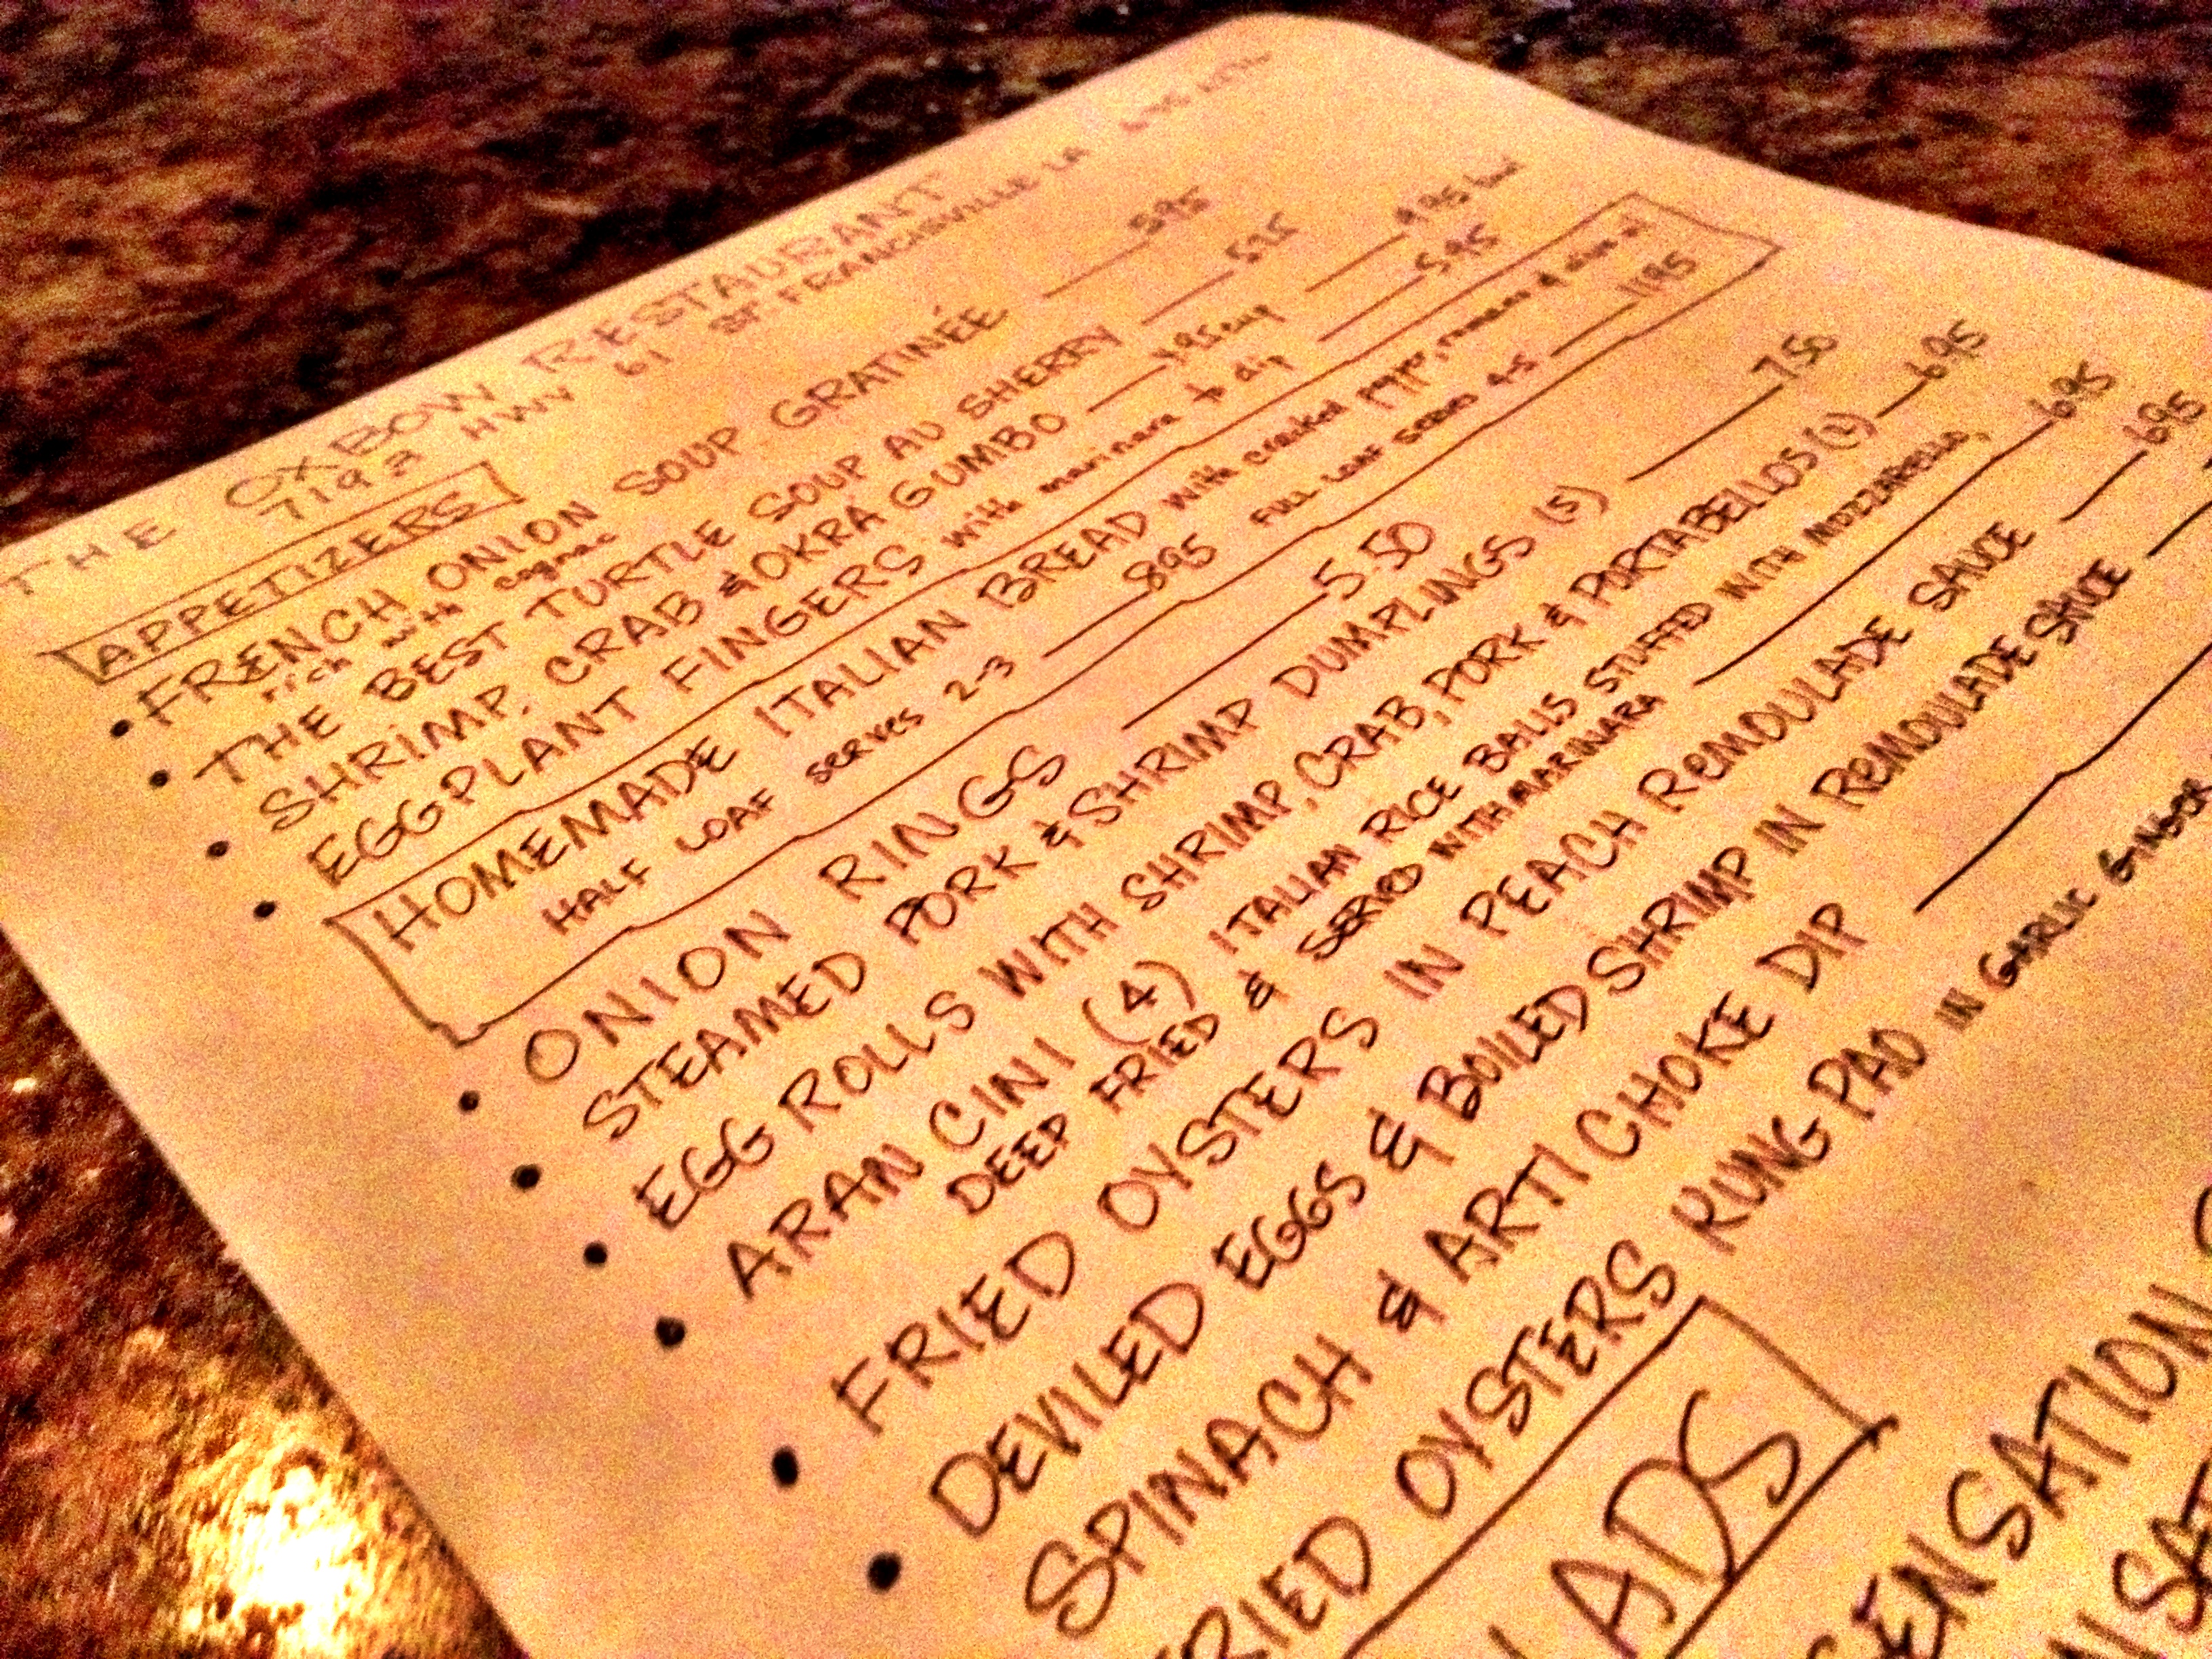 THE OXBOW RESTAURANT
7192 HWY 61 ST. FRANCISVILLE LA
APPETIZERS
• FRENCH ONION SOUP GRATINÉE 595
rich with cognac
• THE BEST TURTLE SOUP AU SHERRY 595
• SHRIMP, CRAB & OKRA GUMBO 495 cup 895 bowl
• EGGPLANT FINGERS with marinara to dip 595
HOMEMADE ITALIAN BREAD with cracked pepper, romano & olive oil
HALF LOAF serves 2-3 895 FULL LOAF serves 4-5 1195
• ONION RINGS 5.50
• STEAMED PORK & SHRIMP DUMPLINGS (5) 750
• EGG ROLLS WITH SHRIMP, CRAB, PORK & PORTABELLOS (2) 695
• ARAN CINI (4) ITALIAN RICE BALLS STUFFED WITH MOZZARELLO,
DEEP FRIED & SERVED WITH MARINARA 695
• FRIED OYSTERS IN PEACH REMOULADE SAUCE 695
• DEVILED EGGS & BOILED SHRIMP IN REMOULADE SAUCE
SPINACH & ARTI CHOKE DIP
FRIED OYSTERS KUNG PAO IN GARLIC GINGER
LADS
SENSATION